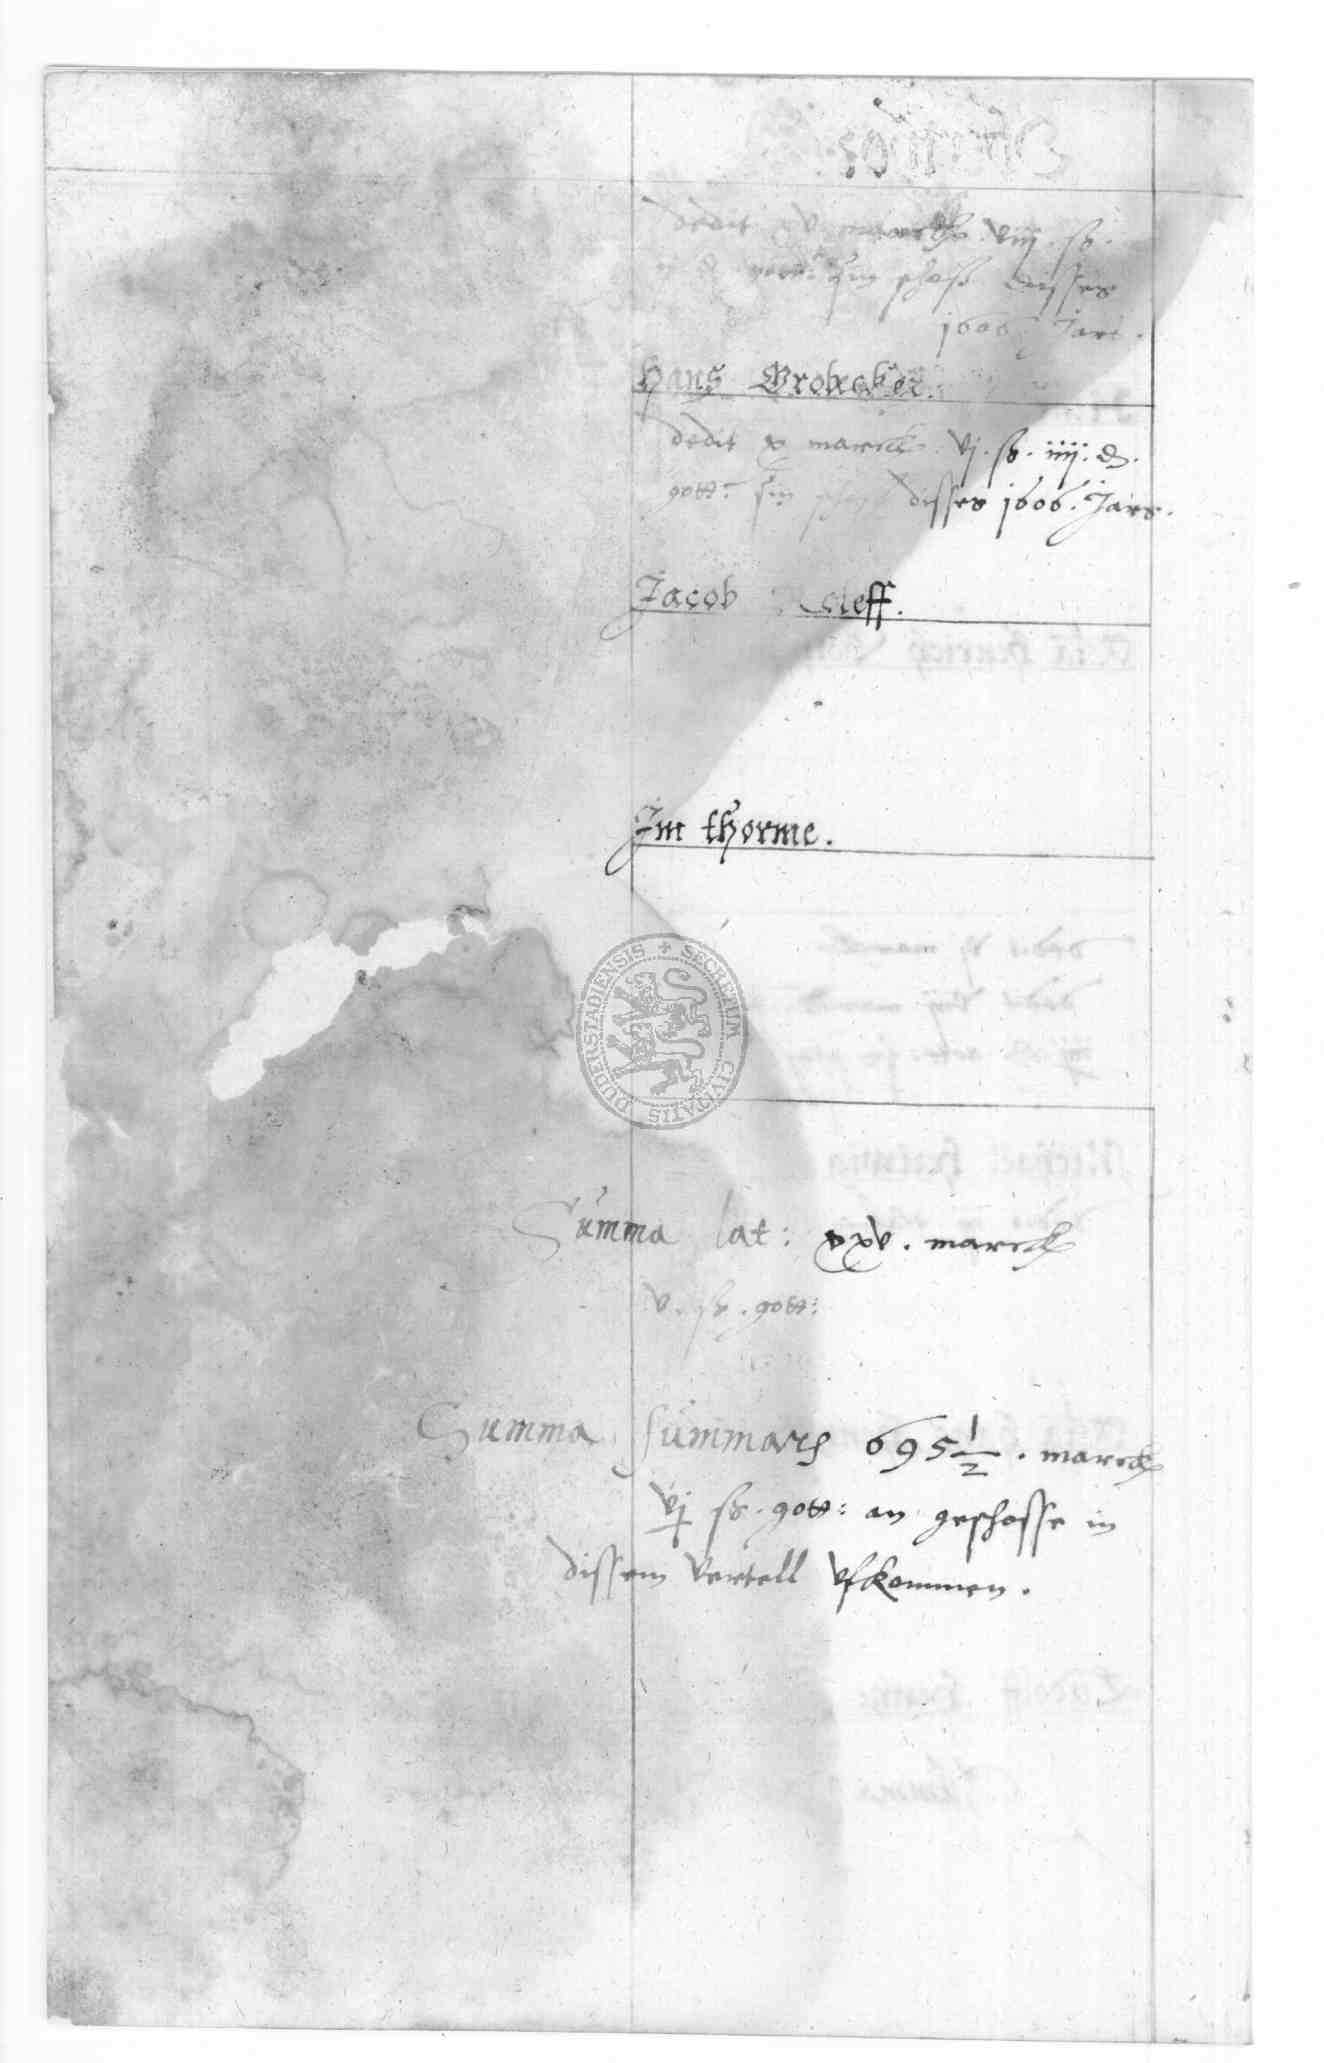 dedit xv marck. viij. sß.
gott: sin schoss disses
1606. Jars.
Hans Brobecker.
dedit x marck. vj. sß. iiij. d.
gott: sin schoss disses 1606. Jars.
Jacob Roleff.
Im thorme.
SECRETUM CIVITATIS DUDERSTADIENSIS
Summa lat: xxv. marck
v. sß. gott:
Summa summarum 695 1/2. marck
vj sß. gott: an geschosse in
dissem vertell ufkommen.